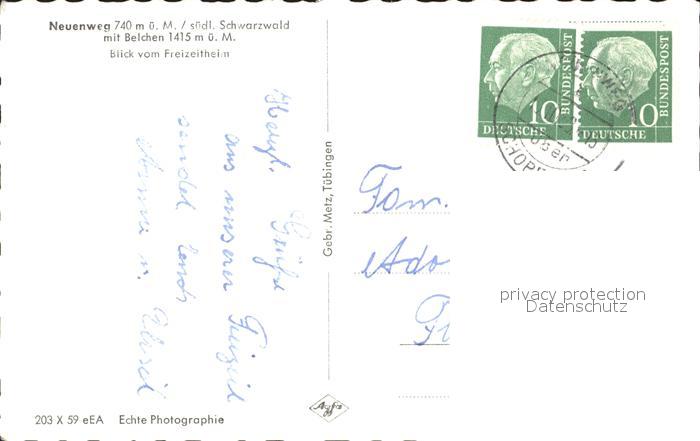 Neuenweg 740 m ü. M. / südl. Schwarzwald
mit Belchen 1415 m ü. M.
Blick vom Freizeitheim
Herzl. Grüße
aus unserer Freizeit
sendet Euch
Gebr. Metz, Tübingen
203 X 59 eEA Echte Photographie
Agfa
10 BUNDESPOST
DEUTSCHE
10 BUNDESPOST
DEUTSCHE
Fam.
Ado
privacy protection
Datenschutz